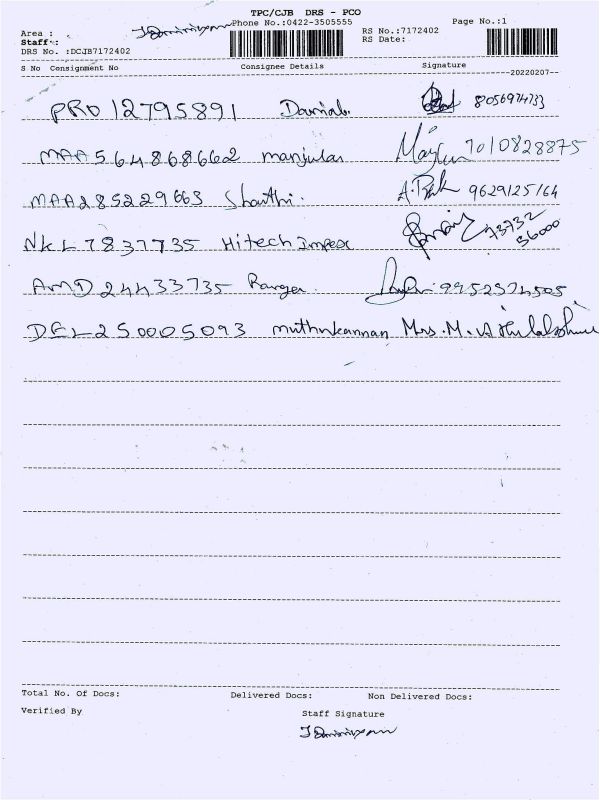 TPC/CJB DRS - PCO
Phone No.:0422-3505555 Page No.:1
Area :
Staff :
RS No.:7172402
RS Date:
DRS No. :DCJB7172402
S No Consignment No Consignee Details Signature
20220207
PRO12795891 8056974733
MAA564868662 manjula 7010828875
MAA285229663 Shanthi. 9629125164
NKL7837735 Hitech Impex 73732 56000
AMD24433735 9952374505
DEL250005093 muthukannan Mrs. M.
Total No. Of Docs: Delivered Docs: Non Delivered Docs:
Verified By
Staff Signature